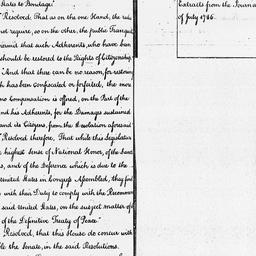 States to Bondage"
"Resolved, That as on the one Hand, the rule
not require, so on the other, the public Tranquil
permit that such Adherents, who have been
should be restored to the Rights of Citizenship
"And that there can be no reason, for restoring
which has been confiscated or forfeited, the more
no Compensation is offered, on the Part of the
and his Adherents, for the Damages sustained
and its Citizens, from the Desolation aforesaid
"Resolved therefore, That while this Legislature
the highest Sense of National Honor, of the Sanc
s, and of the Deference which is due to the
United States in Congress Assembled, they find
with their Duty to comply with the Recommen
said United States, on the subject matter of
of the Definitive Treaty of Peace"
"Resolved, that this House do concur with
the Senate, in the said Resolutions.
Extracts from the Journa
of July 1786.